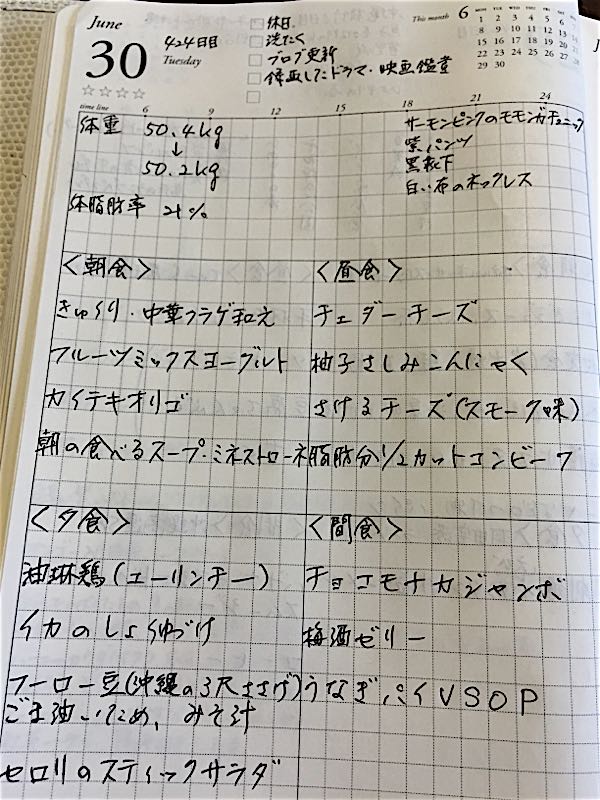 June
30
Tuesday
424日目
休日
洗たく
ブログ更新
録画したドラマ・映画鑑賞
This month 6
MON TUE WED THU FRI SAT SUN
1 2 3 4 5 6 7
8 9 10 11 12 13 14
15 16 17 18 19 20 21
22 23 24 25 26 27 28
29 30
time line 6 9 12 15 18 21 24
体重 50.4kg
↓
50.2kg
体脂肪率 21%
サーモンピンクのモモンガチュニック
紫パンツ
黒靴下
白い布のネックレス
<朝食>
きゅうり・中華クラゲ和え
フルーツミックスヨーグルト
カイテキオリゴ
朝の食べるスープ・ミネストローネ
<昼食>
チェダーチーズ
柚子さしみこんにゃく
さけるチーズ(スモーク味)
脂肪分1/2カットコンビーフ
<夕食>
油琳鶏(ユーリンチー)
イカのしょうゆづけ
フーロー豆(沖縄の3尺ささげ)
ごま油いため、みそ汁
セロリのスティックサラダ
<間食>
チョコモナカジャンボ
梅酒ゼリー
うなぎパイVSOP